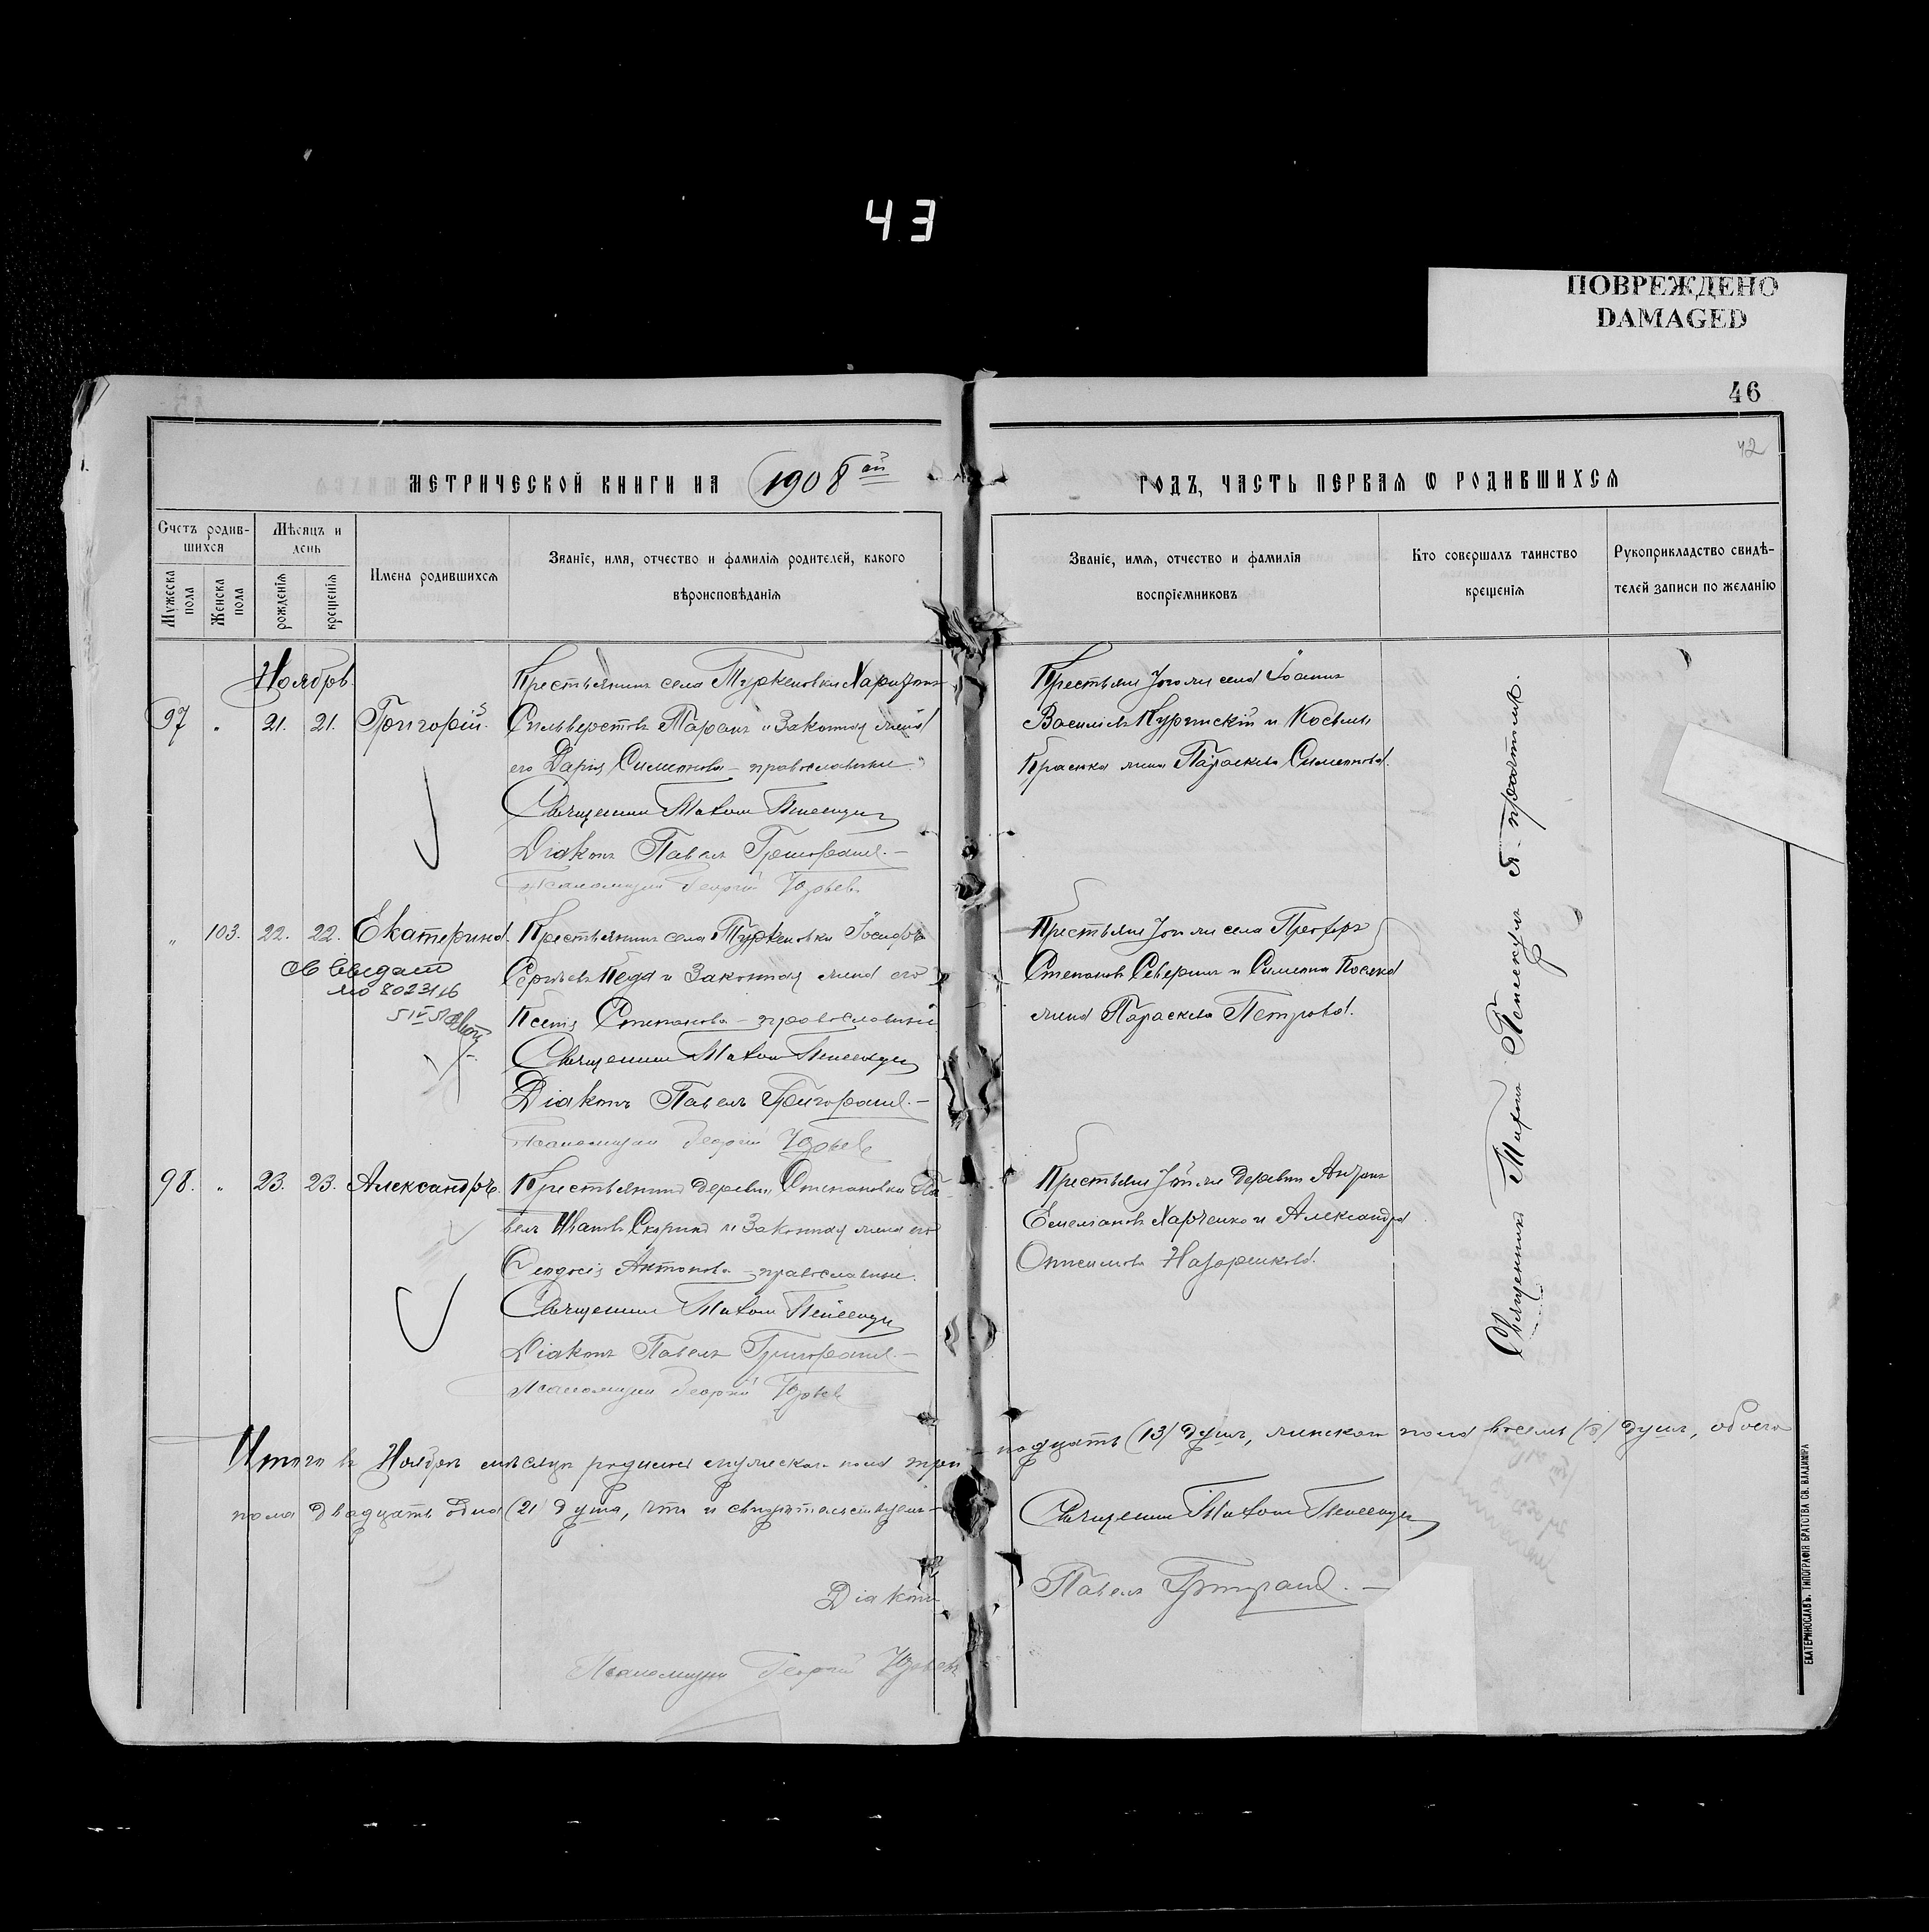 43
ПОВРЕЖДЕНО
DAMAGED
46
42
МЕТРИЧЕСКОЙ КНИГИ НА 1908 ой
ГОДЪ, ЧАСТЬ ПЕРВАЯ Ѡ РОДИВШИХСЯ
Счетъ родив-
шихся
Мужеска пола
Женска пола
Мѣсяцъ и
день
рожденія
крещенія
Имена родившихся
Званіе, имя, отчество и фамилія родителей, какого
вѣроисповѣданія
Званіе, имя, отчество и фамилія
воспріемниковъ
Кто совершалъ таинство
крещенія
Рукоприкладство свидѣ-
телей записи по желанію
Ноябрь
97 " 21. 21. Григорій.
Крестьянинъ села Туркеновки Харитонъ
Сильверстовъ Таранъ и Законная жена
его Дарія Симеонова - православные.
Священникъ Тихонъ
Діаконъ Павелъ
Псаломщикъ Георгій Юрьевъ
Крестьяне села Іоаннъ
Василіевъ и Косьмы
жена Параскева Симеонова.
" 103. 22. 22. Екатерина.
№ 8023116
Крестьянинъ села Туркеновки Іосифъ
Сергѣевъ и Законная жена его
Ксенія Стефанова - православные
Священникъ Тихонъ
Діаконъ Павелъ
Псаломщикъ Георгій Юрьевъ
Крестьяне села
Степановъ Северинъ и Симеона
жена Параскева Петрова.
98. " 23. 23. Александръ.
Крестьянинъ деревни Степановки Па-
велъ Ивановъ Скорикъ и Законная жена его
Ѳеодосія Антонова - православные.
Священникъ Тихонъ
Діаконъ Павелъ
Псаломщикъ Георгій Юрьевъ
Крестьяне деревни
Емеліановъ Харченко и Александра
Онисимова Назаренкова.
Священникъ Тихонъ
Итого въ Ноябрѣ мѣсяцѣ родилось мужеска пола три-
надцать (13) душъ, женскаго пола восемь (8) душъ, обоего
пола двадцать одна (21) душа, что и свидѣтельствуемъ
Священникъ Тихонъ
Діаконъ Павелъ
Псаломщикъ Георгій Юрьевъ
ЕКАТЕРИНОСЛАВЪ. ТИПОГРАФІЯ БРАТСТВА СВ. ВЛАДИМІРА